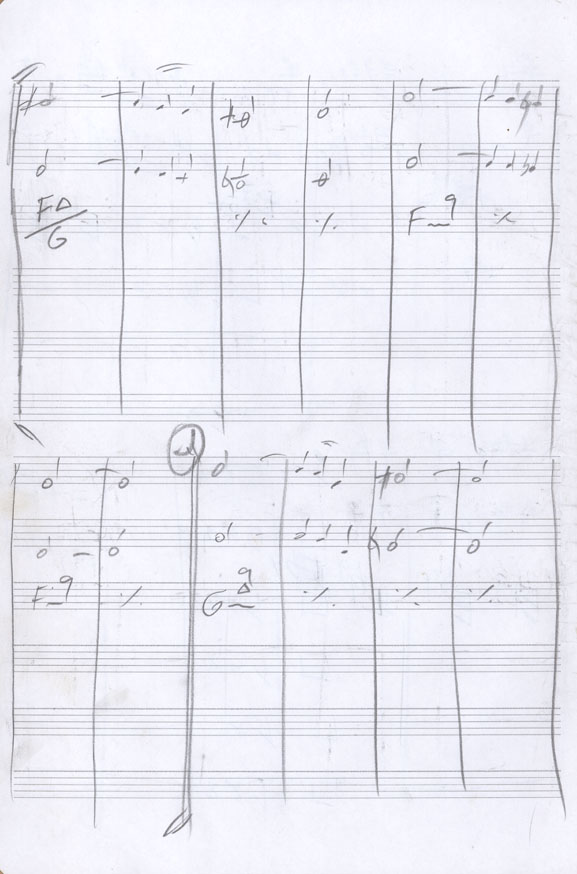 F△/G ٪ ٪ F-9 ٪
F-9 ٪ G-△9 ٪ ٪ ٪